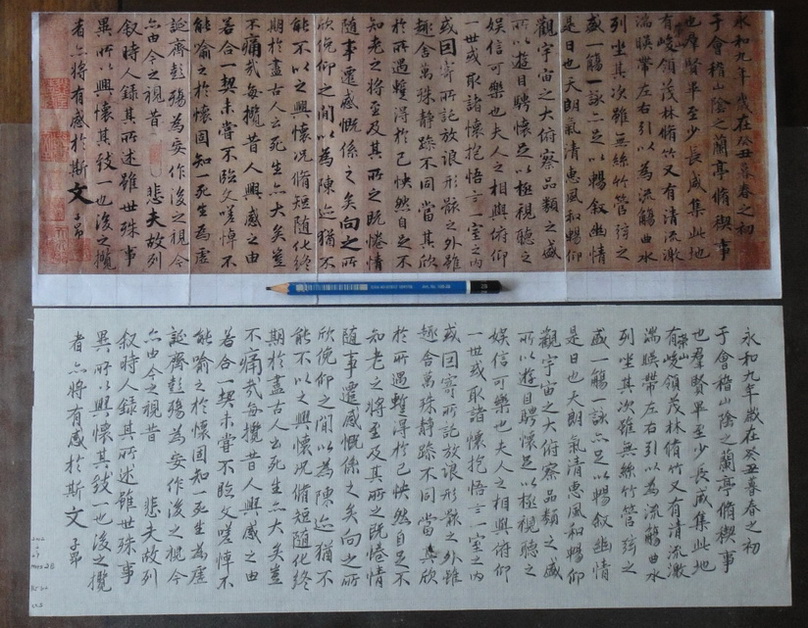 永和九年歲在癸丑暮春之初
于會稽山陰之蘭亭脩稧事
也羣賢畢至少長咸集此地
有崇山峻領茂林脩竹又有清流激
湍暎帶左右引以為流觴曲水
列坐其次雖無絲竹管弦之
盛一觴一詠亦足以暢叙幽情
是日也天朗氣清惠風和暢仰
觀宇宙之大俯察品類之盛
所以遊目騁懷足以極視聽之
娛信可樂也夫人之相與俯仰
一世或取諸懷抱悟言一室之內
或因寄所託放浪形骸之外雖
趣舍萬殊靜躁不同當其欣
於所遇暫得於己怏然自足不
知老之將至及其所之既惓情
隨事遷感慨係之矣向之所
欣俛仰之間以為陳迹猶不
能不以之興懷況脩短隨化終
期於盡古人云死生亦大矣豈
不痛哉每攬昔人興感之由
若合一契未嘗不臨文嗟悼不
能喻之於懷固知一死生為虛
誕齊彭殤為妄作後之視今
亦由今之視昔 悲夫故列
叙時人錄其所述雖世殊事
異所以興懷其致一也後之攬
者亦將有感於斯文 子昂
永和九年歲在癸丑暮春之初
于會稽山陰之蘭亭脩稧事
也羣賢畢至少長咸集此地
有崇山峻領茂林脩竹又有清流激
湍暎帶左右引以為流觴曲水
列坐其次雖無絲竹管弦之
盛一觴一詠亦足以暢叙幽情
是日也天朗氣清惠風和暢仰
觀宇宙之大俯察品類之盛
所以遊目騁懷足以極視聽之
娛信可樂也夫人之相與俯仰
一世或取諸懷抱悟言一室之內
或因寄所託放浪形骸之外雖
趣舍萬殊靜躁不同當其欣
於所遇暫得於己怏然自足不
知老之將至及其所之既惓情
隨事遷感慨係之矣向之所
欣俛仰之間以為陳迹猶不
能不以之興懷況脩短隨化終
期於盡古人云死生亦大矣豈
不痛哉每攬昔人興感之由
若合一契未嘗不臨文嗟悼不
能喻之於懷固知一死生為虛
誕齊彭殤為妄作後之視今
亦由今之視昔 悲夫故列
叙時人錄其所述雖世殊事
異所以興懷其致一也後之攬
者亦將有感於斯文 子昂